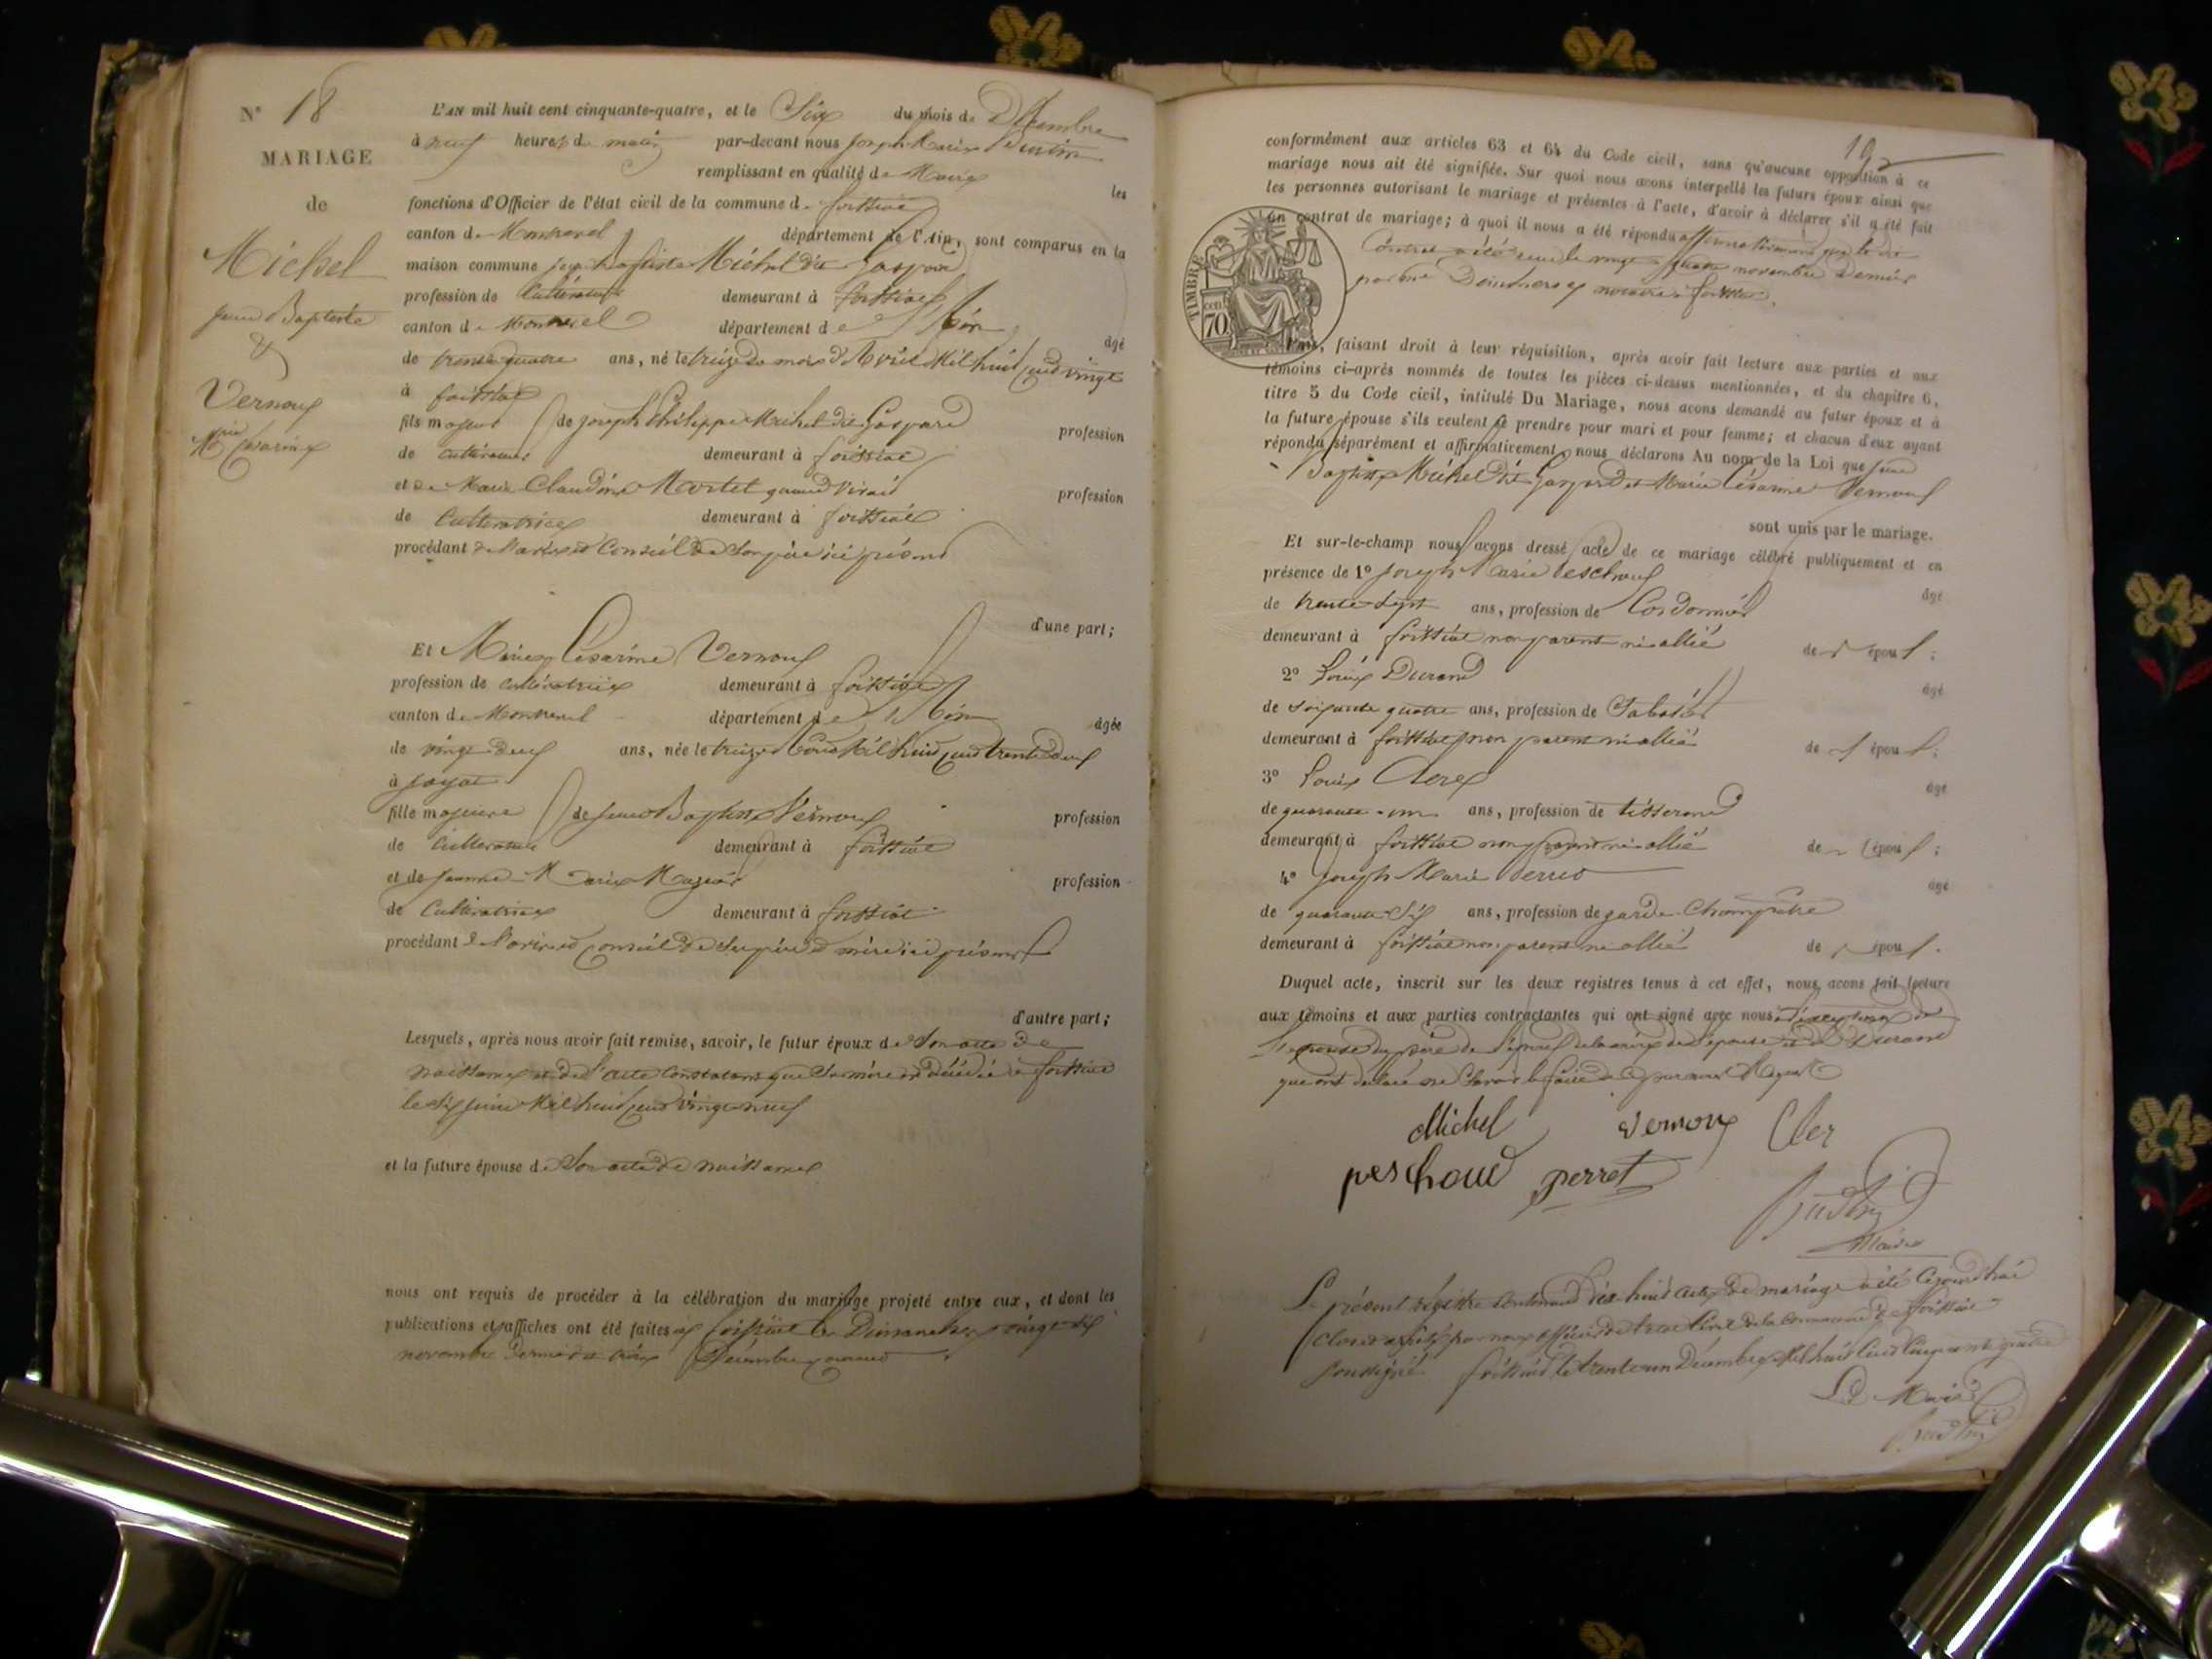 N° 18
MARIAGE
de
Michel
Jean Baptiste
&
Vernoux
Mie Césarine
L'AN mil huit cent cinquante-quatre, et le Six du mois de Décembre
à neuf heures du matin par-devant nous Joseph Marie
remplissant en qualité de Maire les
fonctions d'Officier de l'état civil de la commune de foissiat
canton de Montrevel département de l'Ain, sont comparus en la
maison commune Jean Baptiste Michel dit Gaspard
profession de Cultivateur demeurant à foissiat
canton de Montrevel département de l'Ain âgé
de trente quatre ans, né le treize du mois d'Avril Mil huit cent vingt
à foissiat
fils majeur de Joseph Philippe Michel dit Gaspard profession
de cultivateur demeurant à foissiat
et de Marie Claudine Martel quand vivait profession
de Cultivatrice demeurant à foissiat
procédant de l'avis et Conseil de Son père ici présent
d'une part;
Et Marie Césarine Vernoux
profession de cultivatrice demeurant à foissiat
canton de Montrevel département de l'Ain âgée
de vingt deux ans, née le treize Août Mil huit cent trente deux
à Jayat
fille majeure de Jean Baptiste Vernoux profession
de Cultivateur demeurant à foissiat
et de Jeanne Marie profession
de Cultivatrice demeurant à foissiat
procédant de l'avis et conseil de Ses père et mère ici présents
d'autre part;
Lesquels, après nous avoir fait remise, savoir, le futur époux de Son acte de
naissance et de l'acte Constatant que Sa mère est décédée à foissiat
le Six juin Mil huit cent vingt neuf
et la future épouse de Son acte de naissance
nous ont requis de procéder à la célébration du mariage projeté entre eux, et dont les
publications et affiches ont été faites à foissiat les Dimanches vingt six
novembre dernier et trois Décembre courant
19
conformément aux articles 63 et 64 du Code civil, sans qu'aucune opposition à ce
mariage nous ait été signifiée. Sur quoi nous avons interpellé les futurs époux ainsi que
les personnes autorisant le mariage et présentes à l'acte, d'avoir à déclarer s'il a été fait
un contrat de mariage; à quoi il nous a été répondu affirmativement que le dit
Contrat a été reçu le vingt quatre novembre dernier
par Me notaire à foissiat.
TIMBRE
70 cen
faisant droit à leur réquisition, après avoir fait lecture aux parties et aux
témoins ci-après nommés de toutes les pièces ci-dessus mentionnées, et du chapitre 6,
titre 5 du Code civil, intitulé Du Mariage, nous avons demandé au futur époux et à
la future épouse s'ils veulent se prendre pour mari et pour femme; et chacun d'eux ayant
répondu séparément et affirmativement, nous déclarons Au nom de la Loi que Jean
Baptiste Michel dit Gaspard et Marie Césarine Vernoux
sont unis par le mariage.
Et sur-le-champ nous avons dressé acte de ce mariage célébré publiquement et en
présence de 1° Joseph Marie Peschoux âgé
de trente Sept ans, profession de Cordonnier
demeurant à foissiat non parent ni allié des époux;
2° Louis Durand âgé
de soixante quatre ans, profession de Sabotier
demeurant à foissiat non parent ni allié des époux;
3° Louis Clerc âgé
de quarante un ans, profession de tisserand
demeurant à foissiat non parent ni allié des époux;
4° Joseph Marie Perret âgé
de quarante Six ans, profession de garde Champêtre
demeurant à foissiat non parent ni allié des époux.
Duquel acte, inscrit sur les deux registres tenus à cet effet, nous avons fait lecture
aux témoins et aux parties contractantes qui ont signé avec nous à l'exception de
l'épouse du père de l'époux de la mère de l'épouse et de Durand
qui ont déclaré ne Savoir le faire de ce par nous Requis
Michel Vernoux Cler
peschoud perret
Maire
Le présent registre Contenant dix huit actes de mariage a été Cejourd'hui
Clos et arrêté par nous officier de l'état Civil de la Commune de foissiat
Soussigné. foissiat le trente un Décembre Mil huit Cent Cinquante quatre
Le Maire